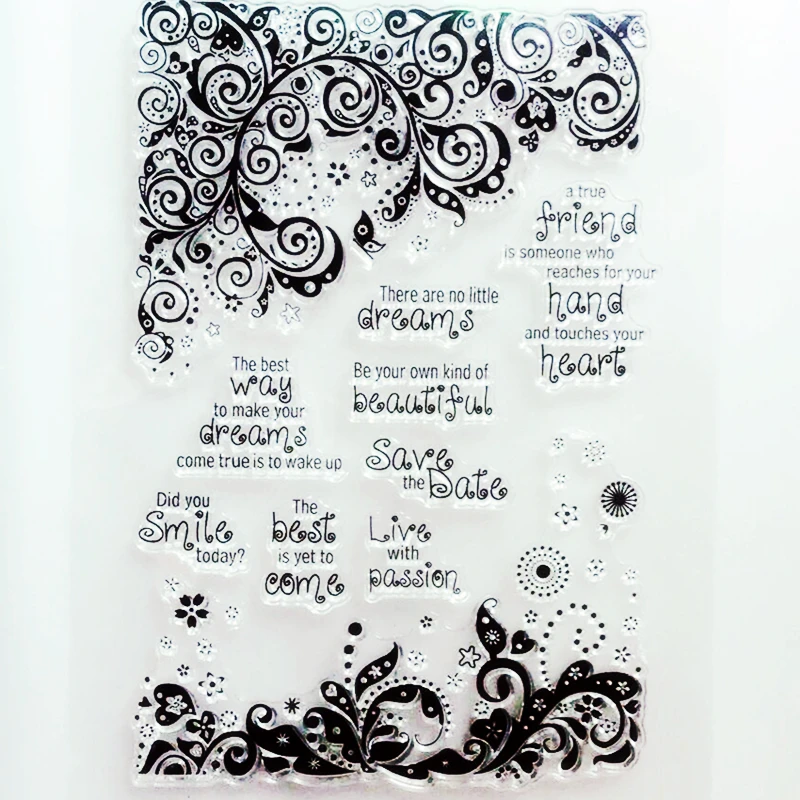 a true
friend
is someone who
reaches for your
hand
and touches your
heart
There are no little
dreams
Be your own kind of
beautiful
The best
way
to make your
dreams
come true is to wake up
Save
the Date
Did you
Smile
today?
The
best
is yet to
come
Live
with
passion